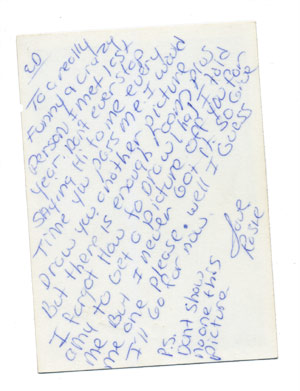 ED
To a really
Funny & crazy
Person I met last
year. Dont ever stop
saying Hi to me every
Time you pass me I would
Draw you another picture
But there is enough room plus
I forgot How to Draw I hap
omy to Get a picture off you told
me But I never Got it so Give
me one Please. well I Guess
I'll Go for now
Love
Rosie
PS.
Dont show
noone this
picture